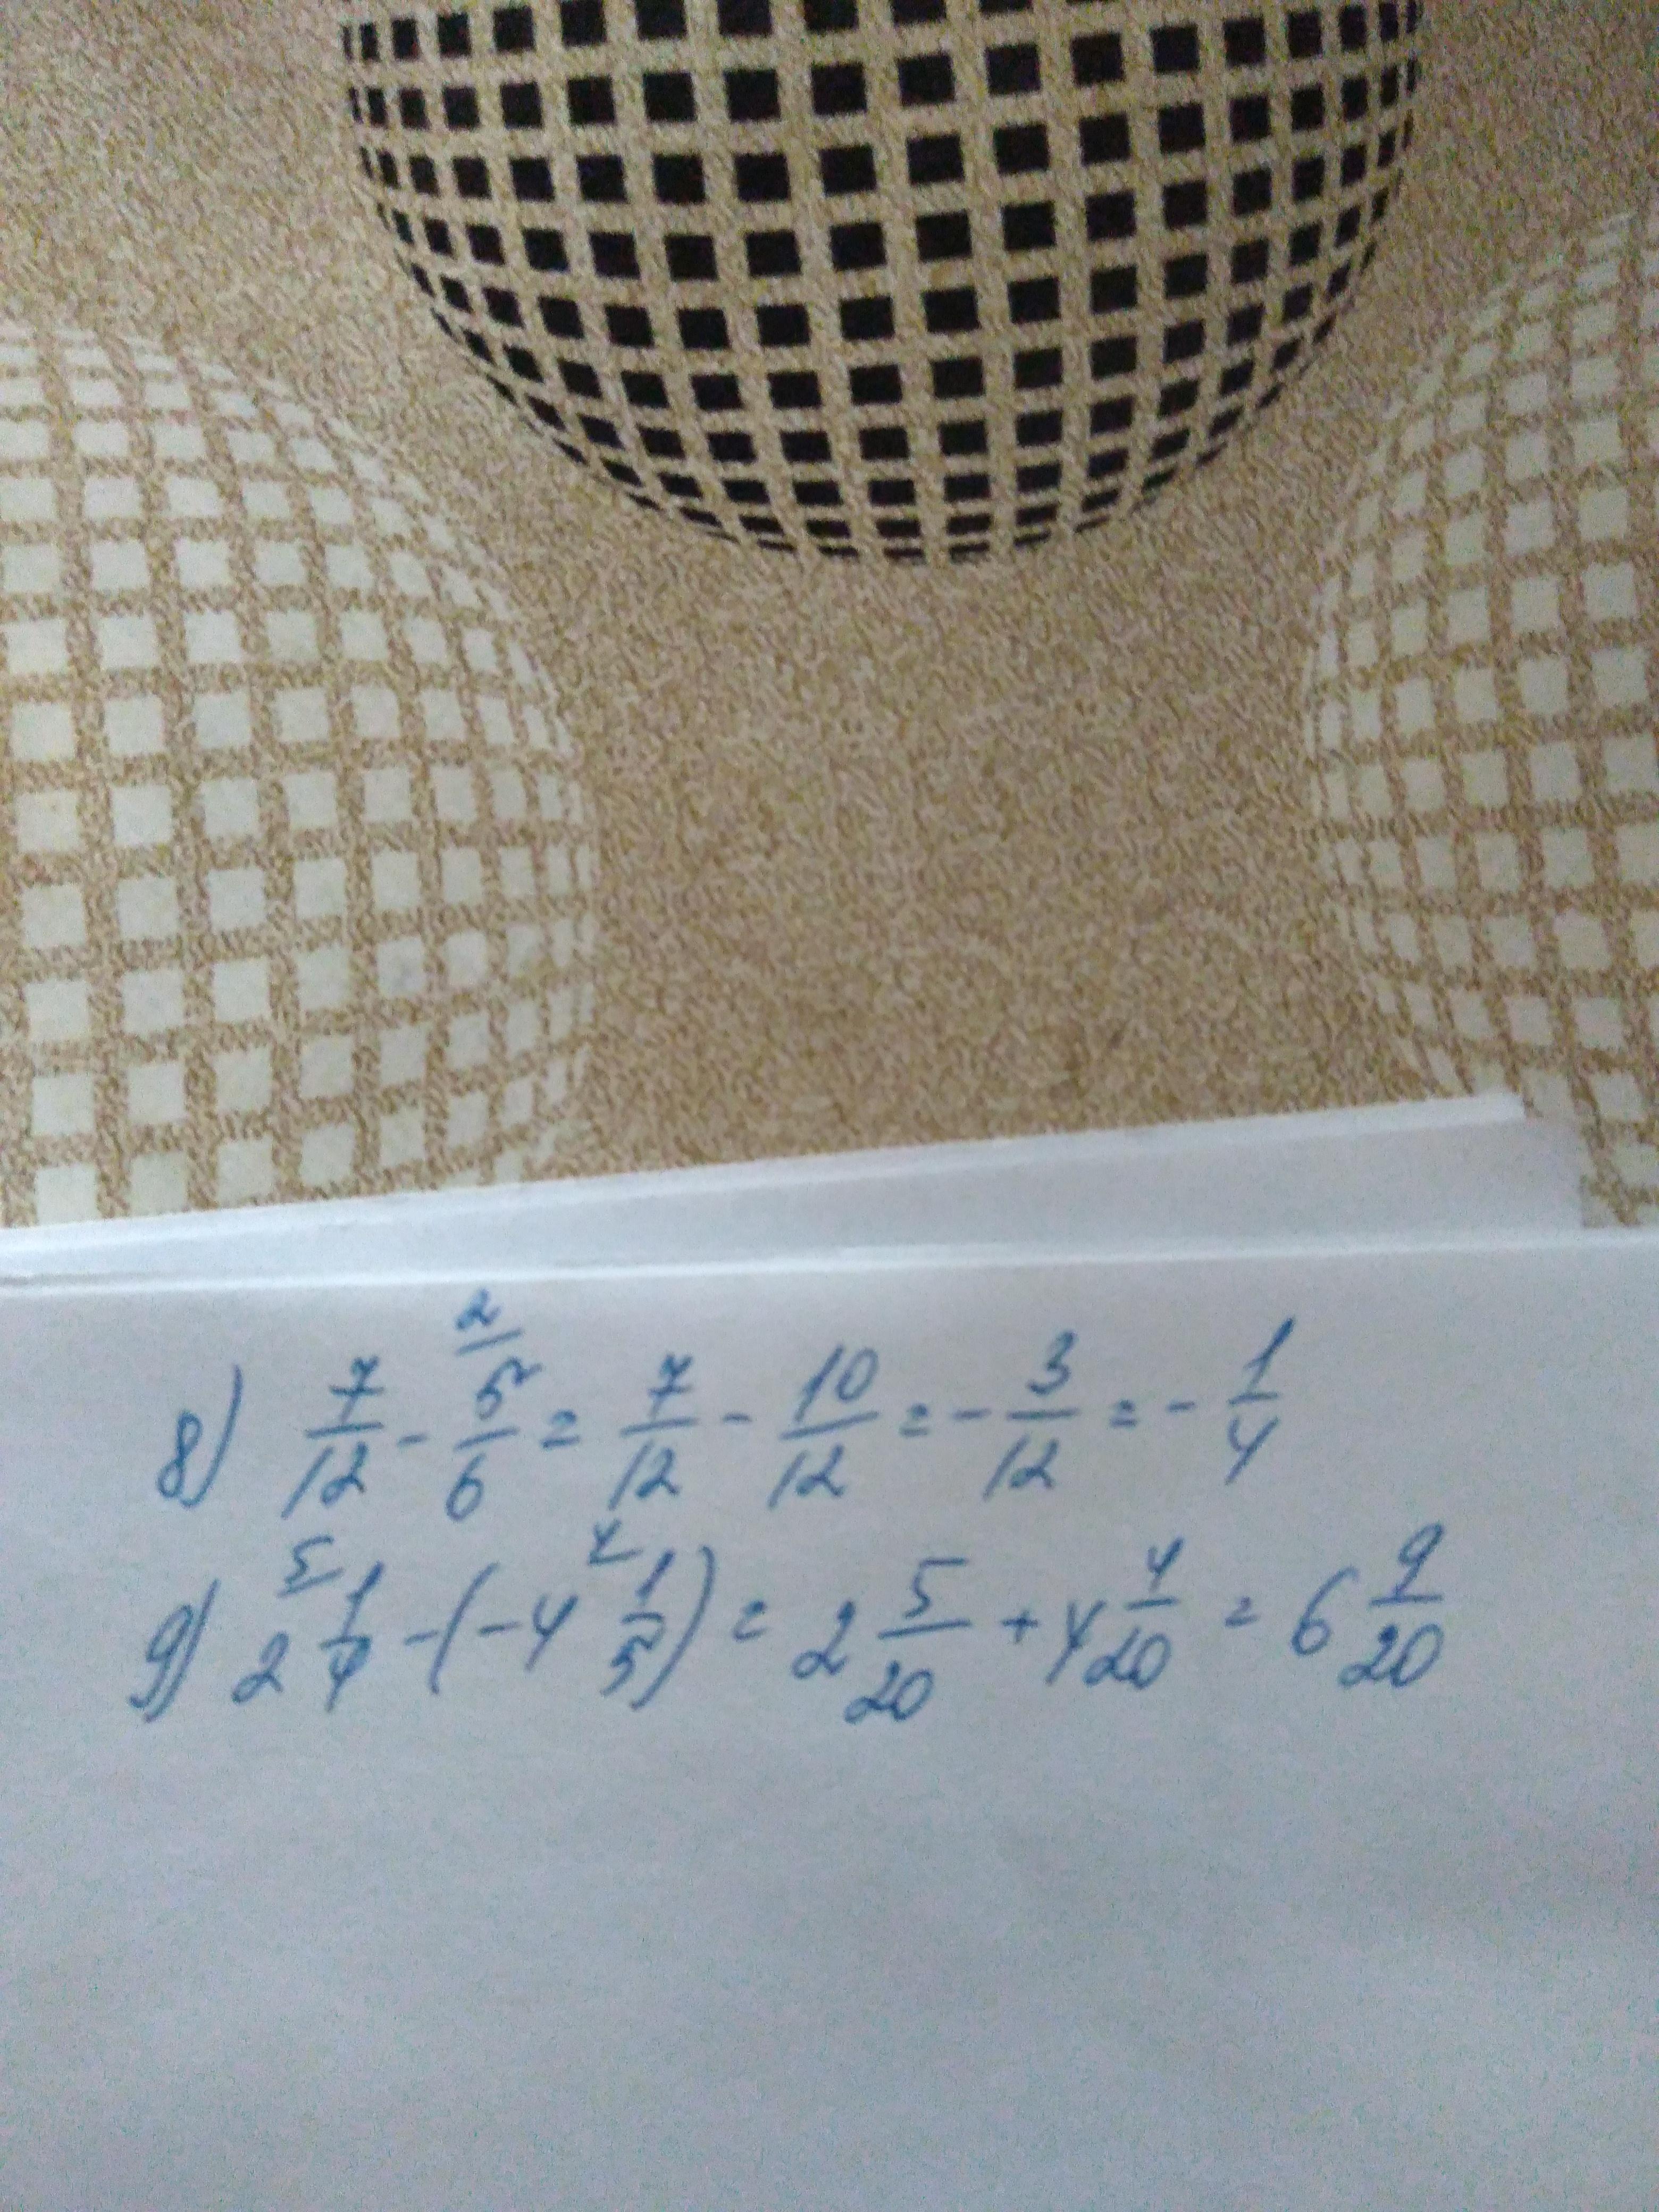 8) 7/12 - 5/6 2/ = 7/12 - 10/12 = - 3/12 = - 1/4
9) 2 5/ 1/4 - (-4 4/ 1/5) = 2 5/20 + 4 4/20 = 6 9/20